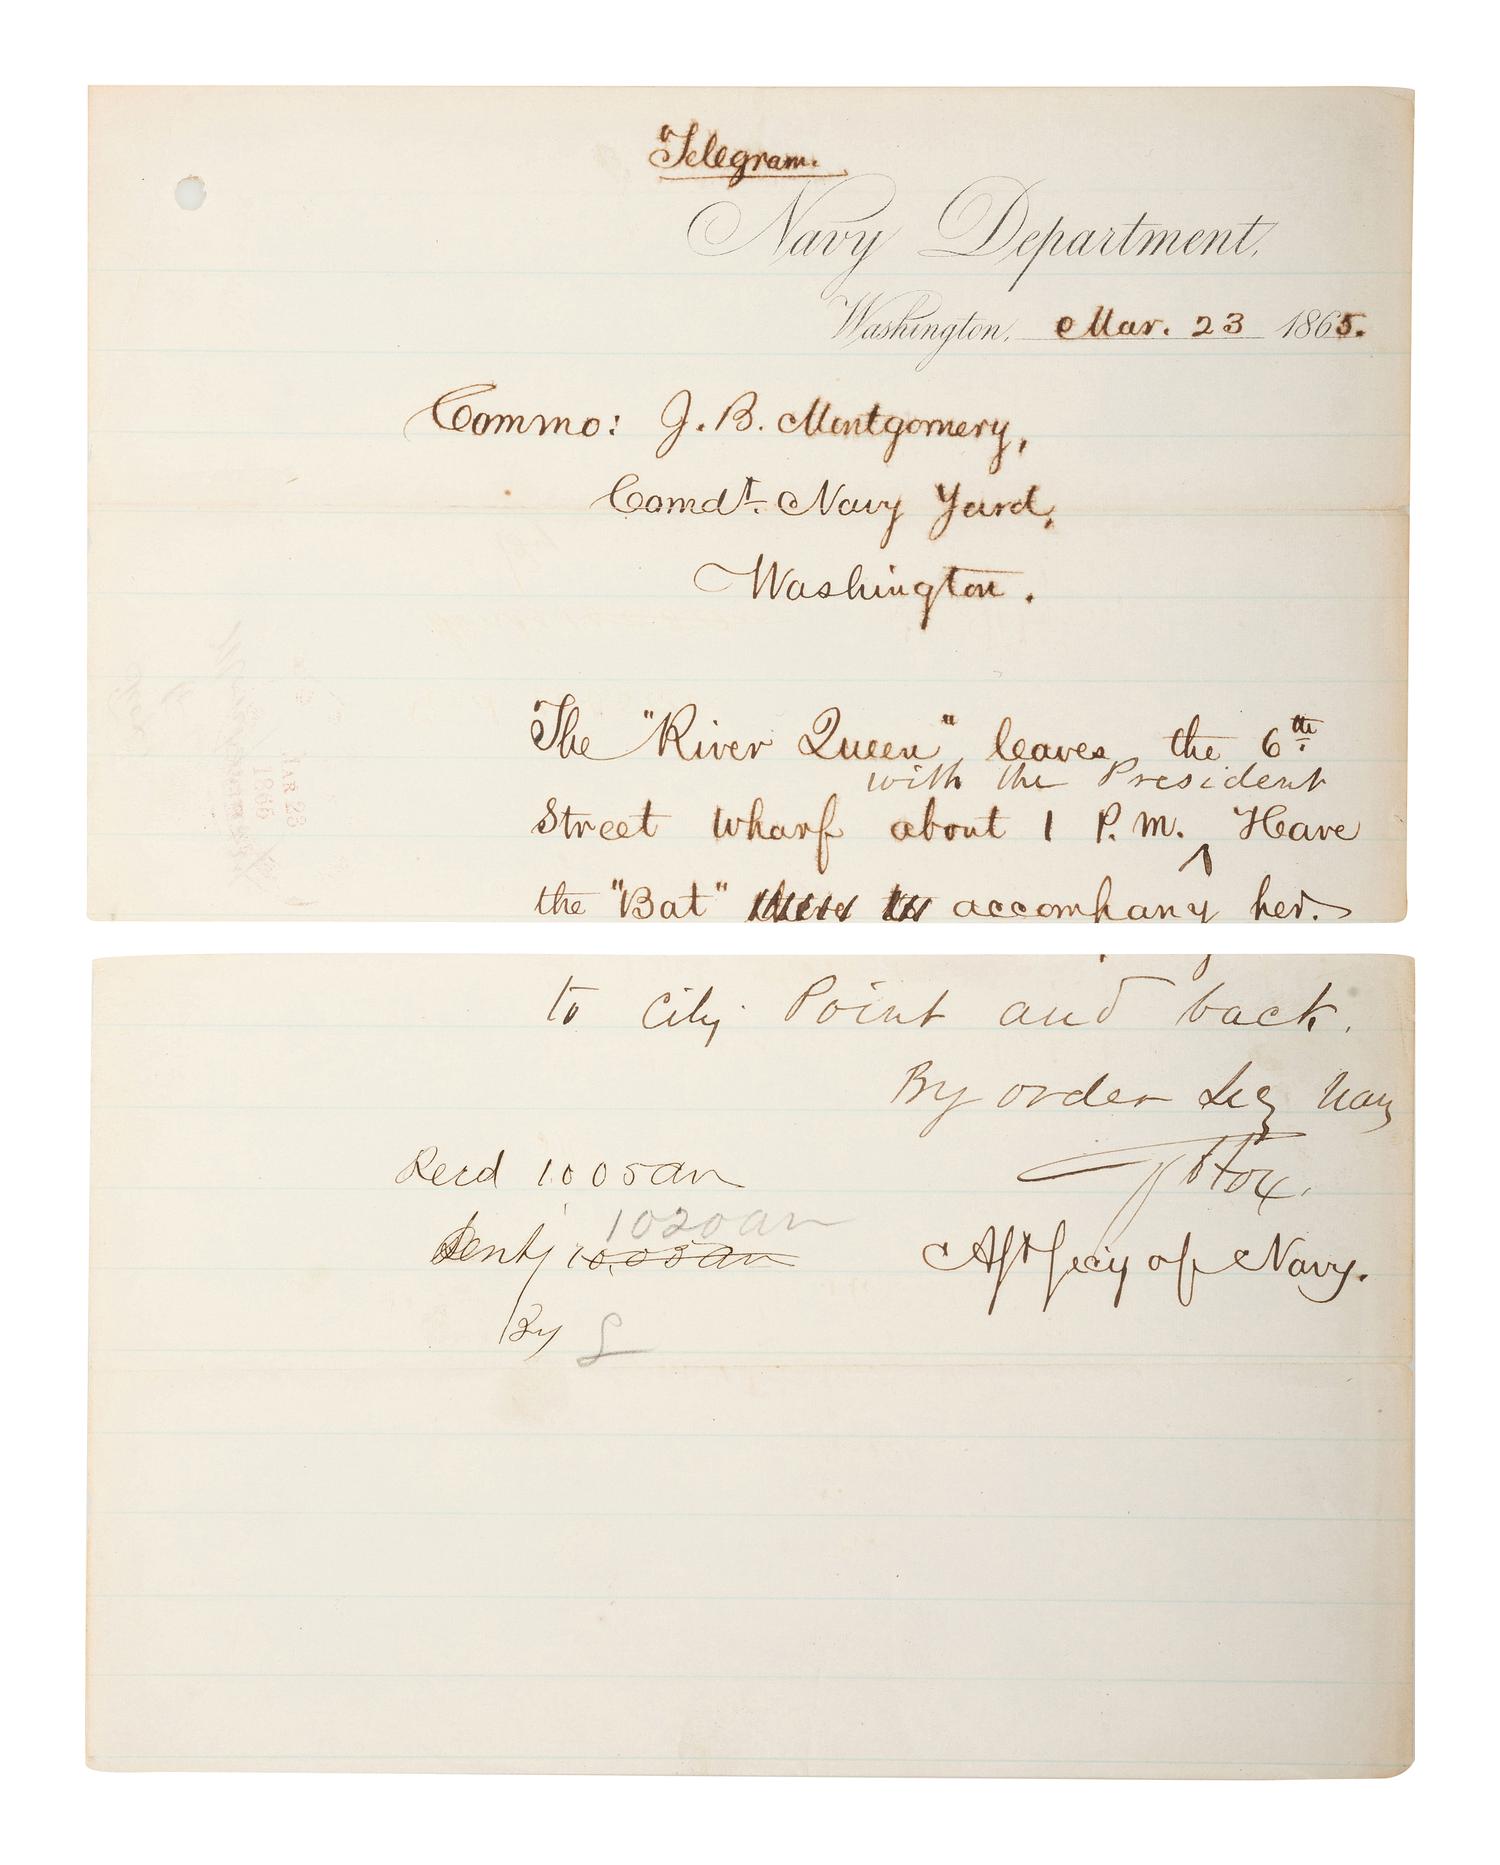 Telegram.
Navy Department,
Washington, Mar. 23 1865.
Commo: J. B. Montgomery,
Comdt. Navy Yard,
Washington.
The "River Queen" leaves the 6th
with the President
Street wharf about 1 P.M. ^ Have
the "Bat" accompany her.
to City Point and back.
By order Sec Navy
Recd 10 05 am
GVFox.
1020am
Sent 10.05 am
Asst Secy of Navy.
By L
MAR 23
1865